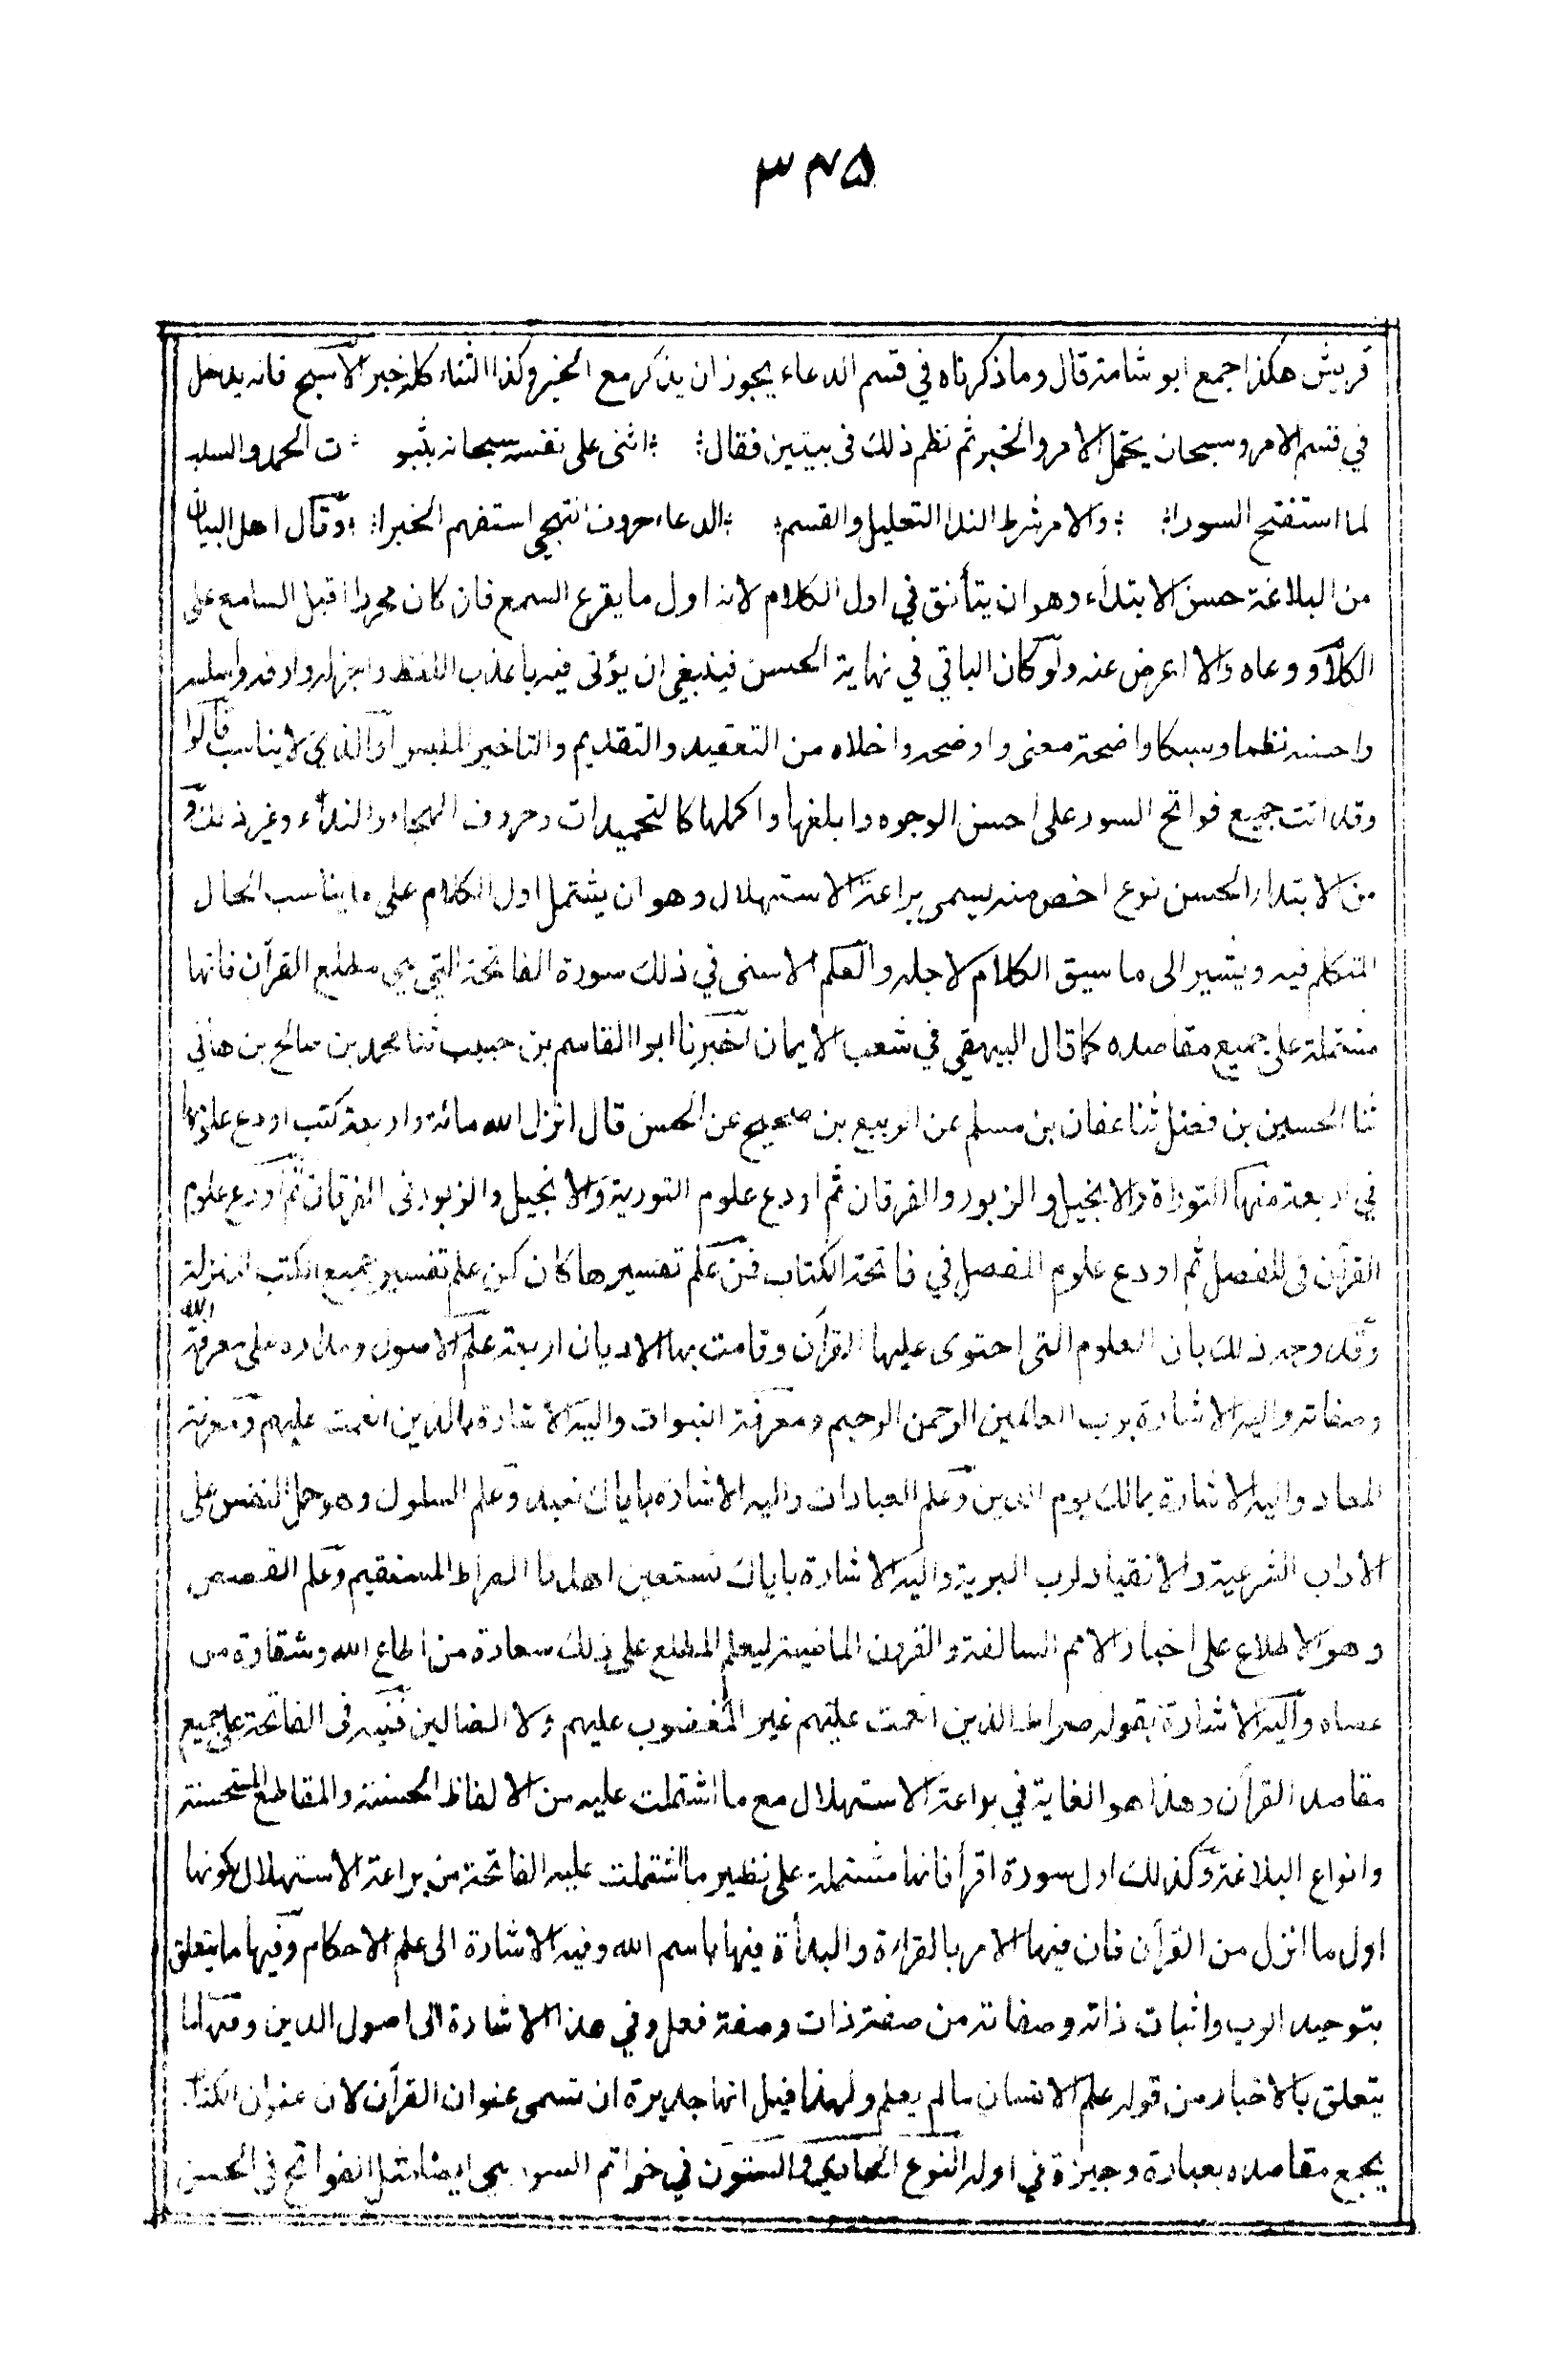 ٣٤٥
قريش هكذا جمع ابو شامة قال وما ذكرناه في قسم الدعاء يجوز ان يذكر مع الخبر وكذا الثناء كله خبر الا سبح فانه يدخل
في قسم الامر وسبحان يحتمل الامر والخبر ثم نظم ذلك فى بيتين فقال؛ ؛ اثنى على نفسه سبحانه بثبو ؛ ت الحمد والسلب
لما استفتح السورا؛ ؛ والامر شرط الندا التعليل والقسم؛ ؛ الدعاء حروف التهجى استفهم الخبرا؛ ؛ وقال اهل البيان
من البلاغة حسن الابتداء وهو ان يتأنق في اول الكلام لانه اول ما يقرع السمع فان كان محررا اقبل السامع على
الكلام ووعاه والا اعرض عنه ولو كان الباقي في نهاية الحسن فينبغى ان يؤتى فيه باعذب اللفظ واجزله وارقه واسلسه
واحسنه نظما وسبكا واضحة معنى واوضحه واخلاه من التعقيد والتقديم والتاخير الملبس او الذي لا يناسب قالوا
وقد اتت جميع فواتح السور على احسن الوجوه وابلغها واكملها كالتحميدات وحروف الهجاء والنداء وغير ذلك و
من الابتداء الحسن نوع اخص منه يسمى براعة الاستهلال وهو ان يشتمل اول الكلام على ما يناسب الحال
المتكلم فيه ويشير الى ما سيق الكلام لاجله والعلم الاسنى في ذلك سورة الفاتحة التي هى مطلع القرآن فانها
مشتملة على جميع مقاصده كما قال البيهقي في شعب الايمان اخبرنا ابو القاسم بن حبيب ثنا محمد بن صالح بن هاني
ثنا الحسين بن فضل ثنا عفان بن مسلم عن الربيع بن صبيح عن الحسن قال انزل الله مائة واربعة كتب اودع علومها
في اربعة منها التوراة والانجيل والزبور والفرقان ثم اودع علوم التورية والانجيل والزبور فى الفرقان ثم اودع علوم
القرآن فى المفصل ثم اودع علوم المفصل في فاتحة الكتاب فمن علم تفسيرها كان كمن علم تفسير جميع الكتب المنزلة
وقد وجه ذلك بان العلوم التى احتوى عليها القرآن وقامت بها الاديان اربعة علم الاصول ومداره على معرفة الله
وصفاته واليه الاشارة برب العالمين الرحمن الرحيم ومعرفة النبوات واليه الاشارة بالذين انعمت عليهم ومعرفة
المعاد واليه الاشارة بمالك يوم الدين وعلم العبادات واليه الاشارة باياك نعبد وعلم السلوك وهو حمل النفس على
الاداب الشرعية والانقياد لرب البرية واليه الاشارة باياك نستعين اهدنا الصراط المستقيم وعلم القصص
وهو الاطلاع على اخبار الامم السالفة والقرون الماضية ليعلم المطلع على ذلك سعادة من اطاع الله وشقاوة من
عصاه واليه الاشارة بقوله صراط الذين انعمت عليهم غير المغضوب عليهم ولا الضالين فنبه فى الفاتحة على جميع
مقاصد القرآن وهذا هو الغاية في براعة الاستهلال مع ما اشتملت عليه من الالفاظ الحسنة والمقاطع المستحسنة
وانواع البلاغة وكذلك اول سورة اقرأ فانها مشتملة على نظير ما اشتملت عليه الفاتحة من براعة الاستهلال لكونها
اول ما انزل من القرآن فان فيها الامر بالقراءة والبدأة فيها باسم الله وفيه الاشارة الى علم الاحكام وفيها ما يتعلق
بتوحيد الرب واثبات ذاته وصفاته من صفة ذات وصفة فعل وفي هذا الاشارة الى اصول الدين وفيها ما
يتعلق بالاخبار من قوله علم الانسان ما لم يعلم ولهذا قيل انها جديرة ان تسمى عنوان القرآن لان عنوان الكتاب
يجمع مقاصده بعبارة وجيزة في اوله النوع الحادي والستون في خواتم السور هى ايضا مثل الفواتح فى الحسن